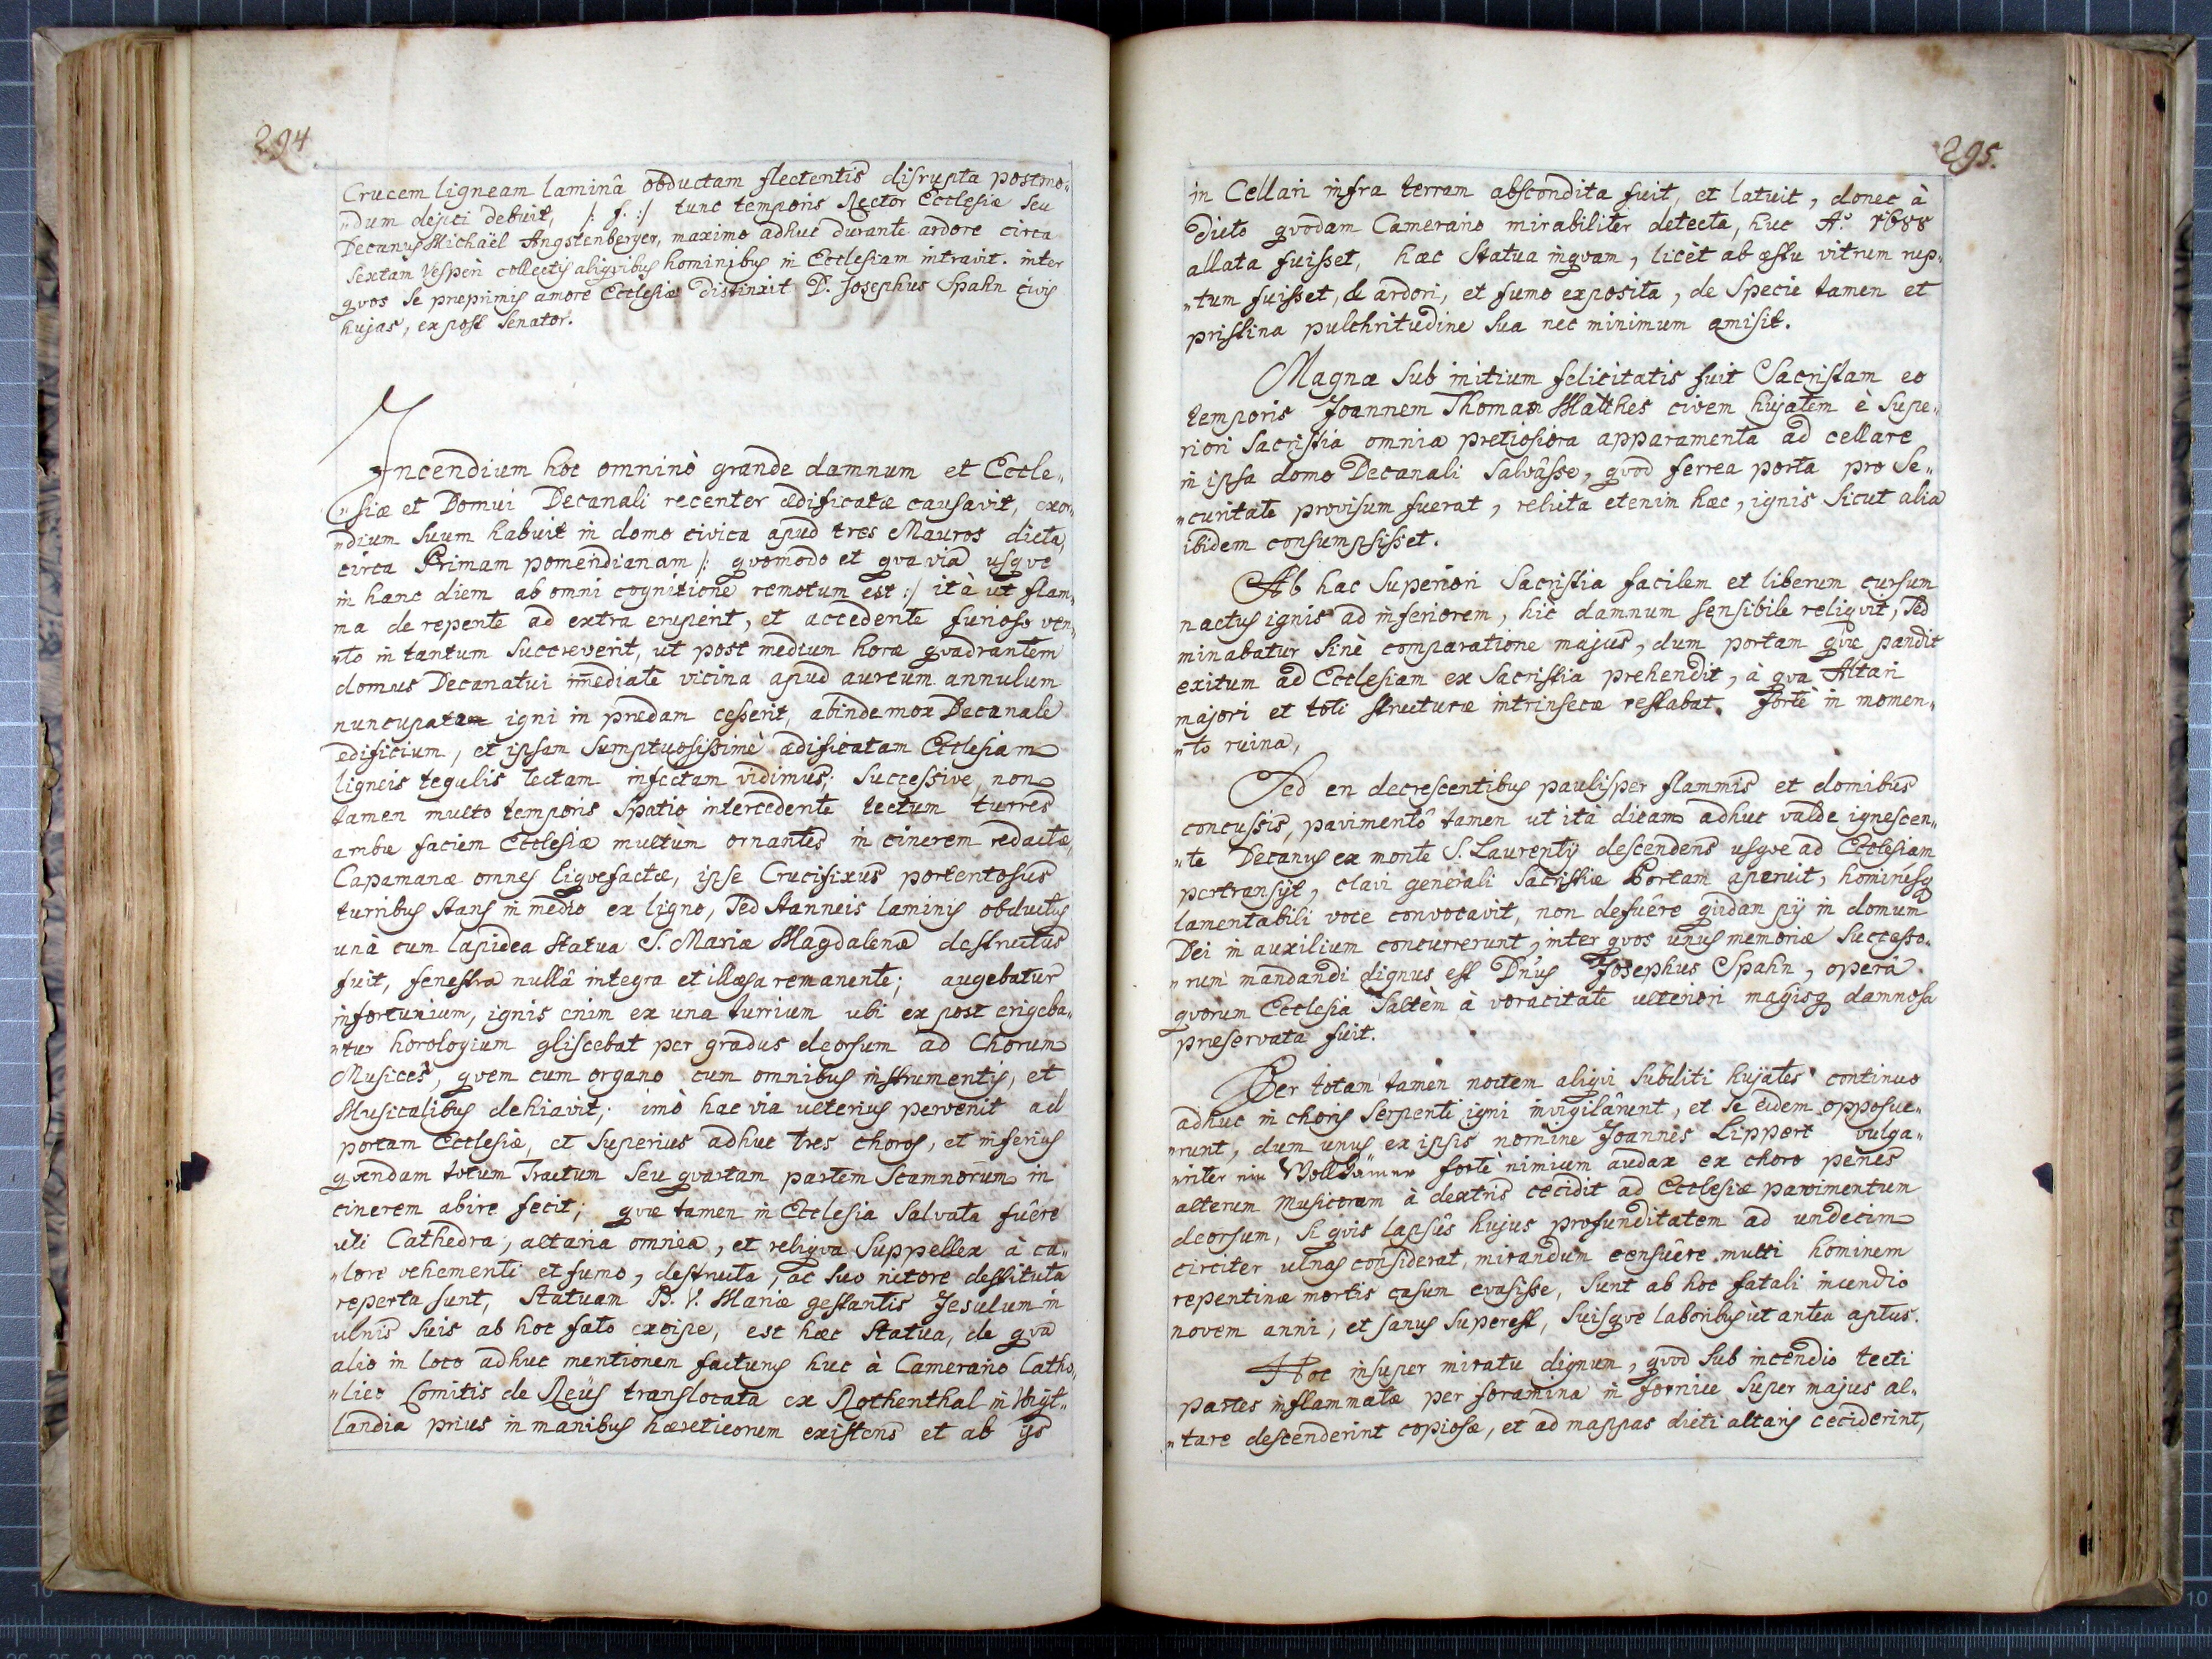 294
Crucem ligneam laminâ obductam flectentis disrupta postmo„
„dum dejici debuit, /: f. :/ tunc temporis Rector Ecclesiæ seu
Decanus Michaël Angstenberger, maximo adhuc durante ardore circa
sextam Vesperi collectis aliqvibus hominibus in Ecclesiam intravit. inter
qvos se præprimis amore Ecclesiæ distinxit D. Josephus Spahn civis
hujas, ex post Senator.
Incendium hoc omninò grande damnum et Eccle„
„siæ et Domui Decanali recenter ædificatæ causavit, exor„
„dium suum habuit in domo civica apud tres Mauros dicta,
circa Primam pomeridianam /: qvomodo et qva via usqve
in hanc diem ab omni cognitione remotum est :/ ità ut flam„
ma de repente ad extra eruperit, et accedente furioso ven„
„to in tantum succreverit, ut post medium horæ qvadrantem
domus Decanatui im̄ediate vicina apud aureum annulum
nuncupatam igni in prædam cesserit, abinde mox Decanale
ædificium, et ipsam sumptuosissimè ædificatam Ecclesiam
ligneis tegulis tectam infectam vidimus; successive, non
tamen multo temporis spatio intercedente tectum turres
ambæ faciem Ecclesiæ multùm ornantes in cinerem redactæ,
Capamanæ omnes liqvefactæ, ipse Crucifixus portentosus
turribus stans in medio ex ligno, sed stanneis laminis obductus
unà cum lapidea statua S. Mariæ Magdalenæ destructus
fuit, fenestra nullâ integra et illæsa remanente; augebatur
infortunium, ignis enim ex una turrium ubi ex post erigeba„
„tur horologium gliscebat per gradus deorsum ad Chorum
Musices, qvem cum organo cum omnibus instrumentis, et
Musicalibus dehiavit; imò hac via ulterius pervenit ad
portam Ecclesiæ, et superius adhuc tres choros, et inferius
qvendam totum Tractum seu qvartam partem Scamnorum in
cinerem abire fecit; qvæ tamen in Ecclesia salvata fuêre
uti Cathedra, altaria omnia, et reliqva suppellex à ca„
„lore vehementi et fumo, destructa, ac suo nitore destituta
reperta sunt, statuam B. V. Mariæ gestantis Jesulum in
ulnis suis ab hoc fato excipe, est hæc statua, de qva
alio in loco adhuc mentionem facturus huc à Camerario Catho„
„lico Comitis de Reüs translocata ex Rothenthal in Voigt„
landia prius in manibus hæreticorum existens et ab ijs
295.
in Cellari infra terram abscondita fuit, et latuit, donec à
dicto qvodam Camerario mirabiliter detecta, huc Aº. 1688
allata fuisset, hæc statua inqvam, licèt ab æstu vitrum rup„
„tum fuisset, & ardori, et fumo exposita, de specie tamen et
pristina pulchritudine sua nec minimum amisit.
Magnæ sub initium felicitatis fuit Sacristam eo
temporis Joannem Thomam Matthes civem hujatem è supe„
riori Sacristia omnia pretiosiora apparamenta ad cellare
in ipsa domo Decanali salvâsse, qvod ferrea porta pro se„
„curitate provisum fuerat, relicta etenim hæc, ignis sicut alia
ibidem consumpsisset.
Ab hac superiori Sacristia facilem et liberum cursum
nactus ignis ad inferiorem, hic damnum sensibile reliqvit, sed
minabatur sinè comparatione majus, dum portam qvæ pandit
exitum ad Ecclesiam ex Sacristia prehendit, à qva Altari
majori et toti structuræ intrinsecæ restabat. forte in momen„
„to ruina,
Sed en decrescentibus paulisper flammis et domibus
concussis, pavimentô tamen ut ità dicam adhuc valde ignescen„
„te Decanus ex monte S. Laurentij descendens usqve ad Ecclesiam
pertransijt, clavi generali Sacristiæ Portam aperuit, hominesq
lamentabili voce convocavit, non defuêre qvidam pij in domum
Dei in auxilium concurrerunt, inter qvos unus memoriæ successo„
„rum mandandi dignus est Dn̄us Josephus Spahn, operâ
qvorum Ecclesia saltèm à voracitate ulteriori magisq damnosa
præservata fuit.
Per totam tamen noctem aliqvi subditi hujates continuo
adhuc in choris serpenti igni invigilârunt, et se eidem opposue„
„runt, dum unus ex ipsis nomine Joannes Lippert vulga„
„riter forte nimium audax ex choro penes
alterum Musicorum à dextris cecidit ad Ecclesiæ pavimentum
deorsum, si qvis lapsûs hujus profunditatem ad undecim
circiter ulnas considerat, mirandum censuêre multi hominem
repentinæ mortis casum evasisse, sunt ab hoc fatali incendio
novem anni, et sanus superest, suisqve laboribus ut antea aptus.
Hoc insuper miratu dignum, qvod sub incendio tecti
partes inflammatæ per foramina in fornice super majus al„
„tare descenderint copiosæ, et ad mappas dicti altaris ceciderint,